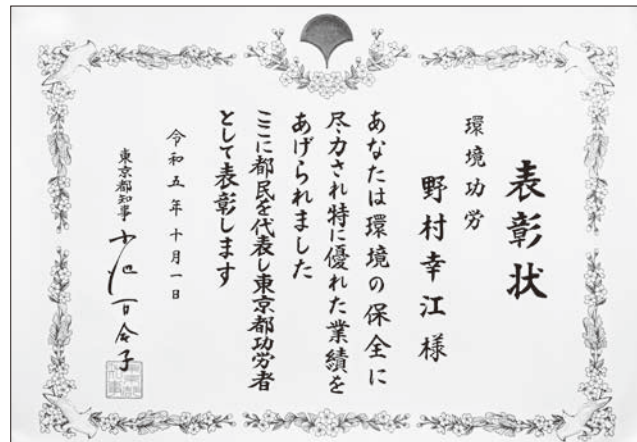 表彰状
環境功労
野村幸江様
あなたは環境の保全に
尽力され特に優れた業績を
あげられました
ここに都民を代表し東京都功労者
として表彰します
令和五年十月一日
東京都知事 小池百合子